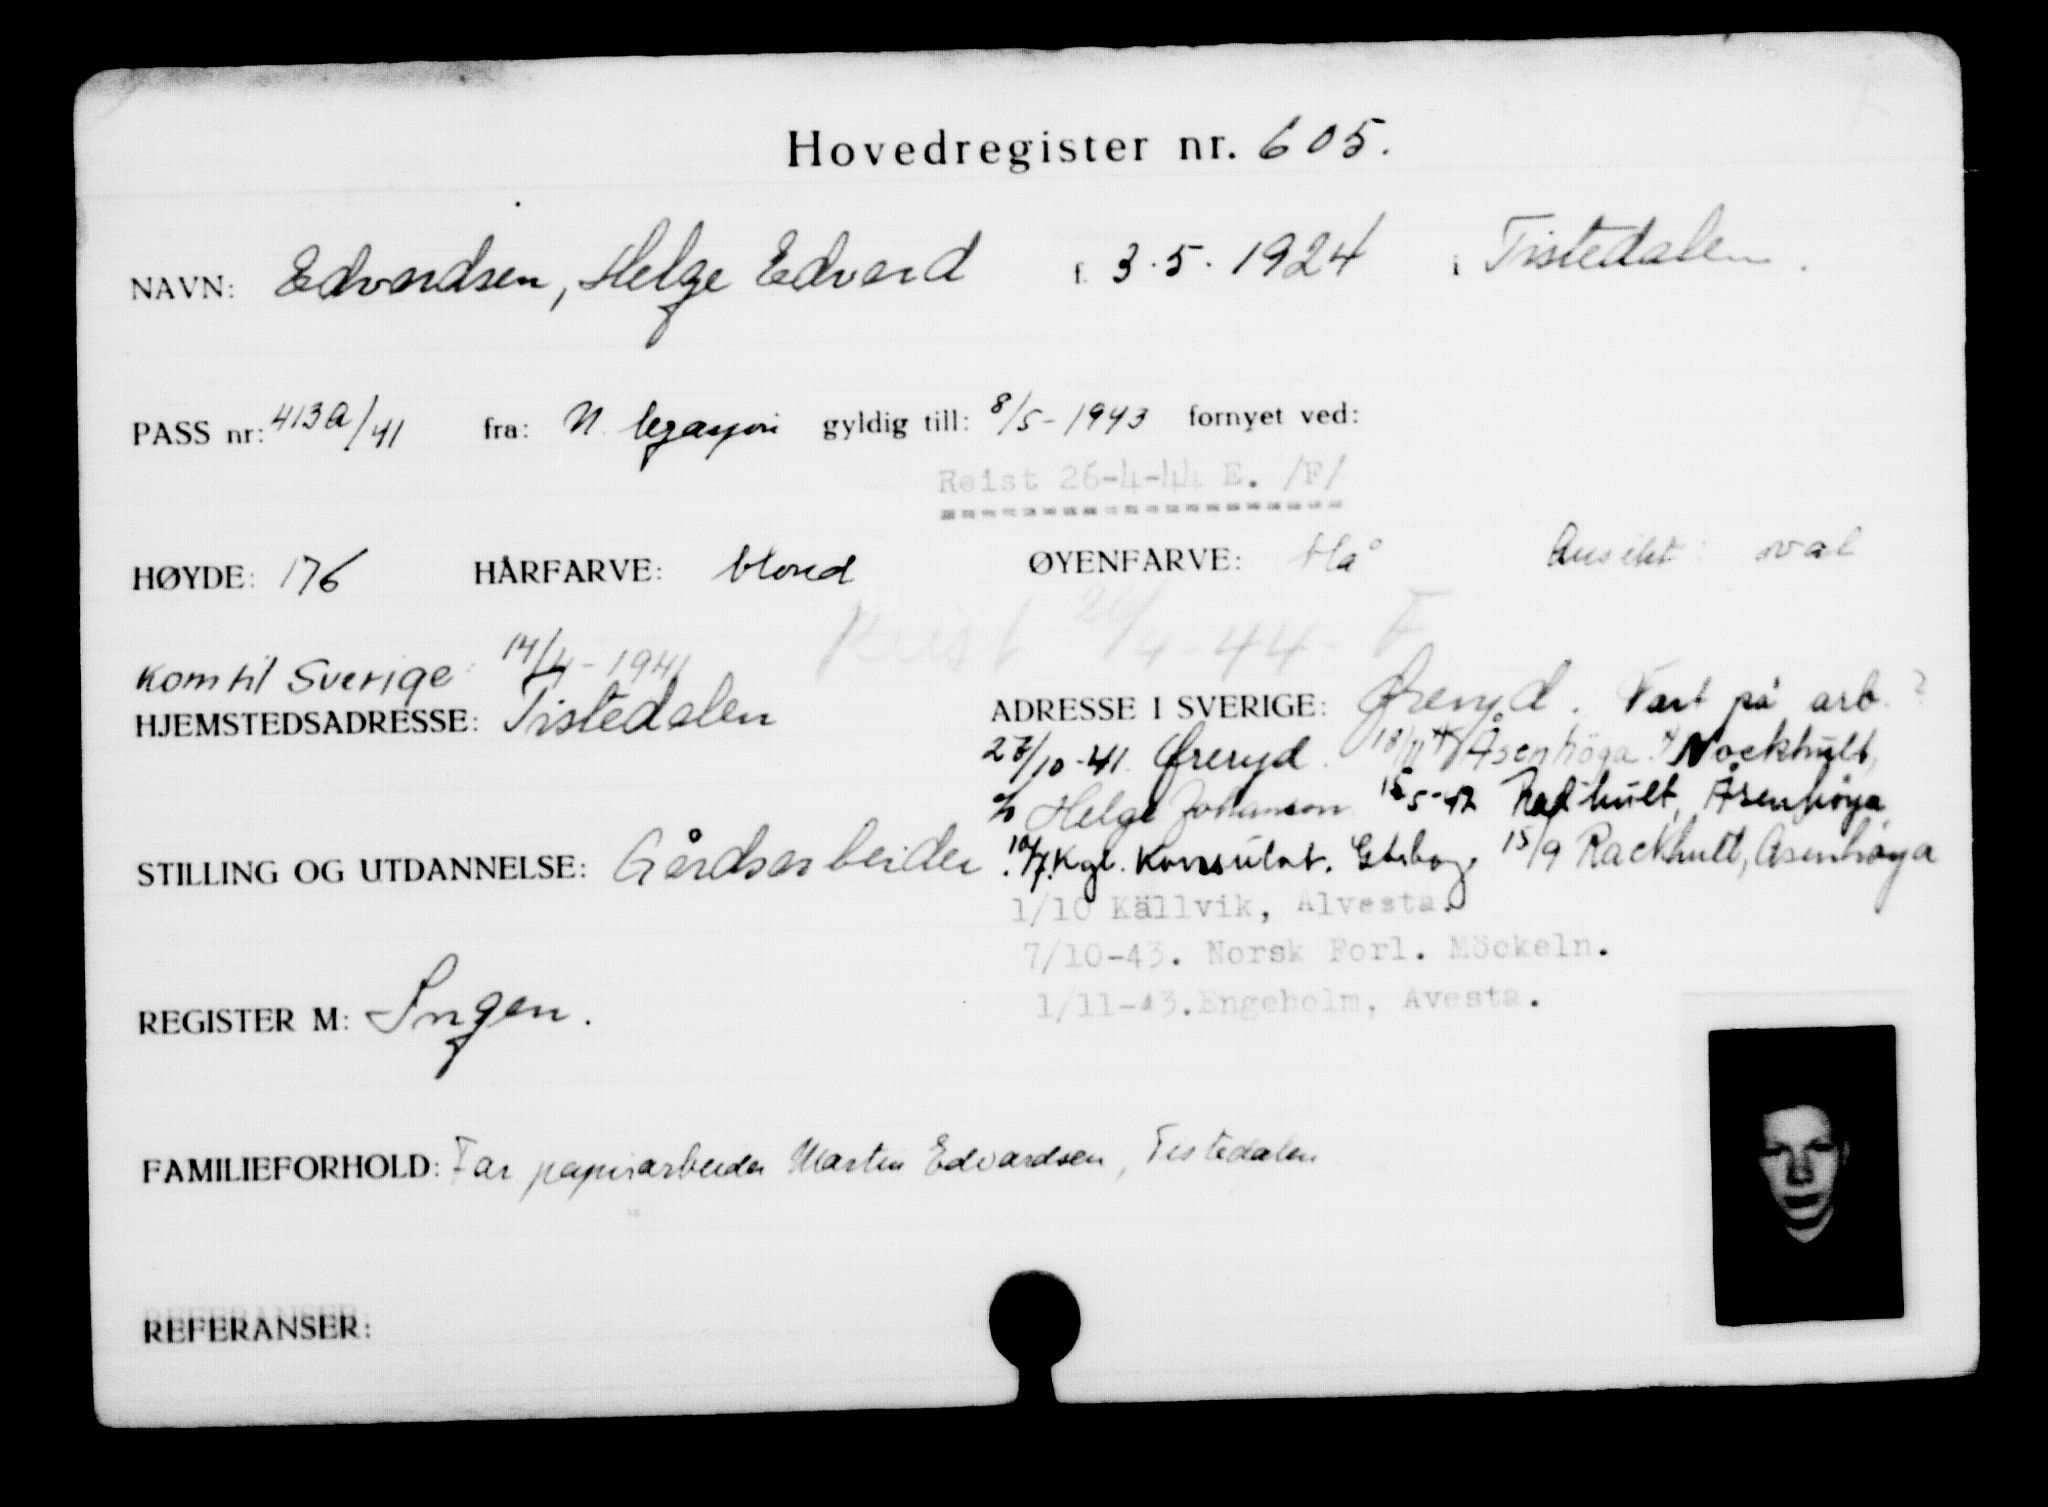 Hovedregister nr. 605.
NAVN: Edvardsen, Helge Edvard f. 3.5.1924 i Tistedalen.
PASS nr: 413a/41 fra: N. legasjon gyldig till: 8/5-1943 fornyet ved:
Reist 26-4-44 E. /F/
HØYDE: 176 HÅRFARVE: blond ØYENFARVE: blå Ansikt: oval
Reist 26/4-44- F
Kom til Sverige: 14/4-1941
HJEMSTEDSADRESSE: Tistedalen ADRESSE I SVERIGE: Øreryd. Vart på arb.?
28/10-41. Øreryd. 18/11 Åsenhöga. Nockhult,
c/o Helge Johansson 15/5-42 Åsenhöga,
STILLING OG UTDANNELSE: Gårdsarbeider. 10/7. Kgl. Konsulat. Gtbog. 15/9 Rackhult, Åsenhöga
1/10 Källvik, Alvesta.
7/10-43. Norsk Forl. Möckeln.
REGISTER M: Ingen. 1/11-43. Engeholm, Avesta.
FAMILIEFORHOLD: Far papirarbeider Martin Edvardsen, Tistedalen
REFERANSER: